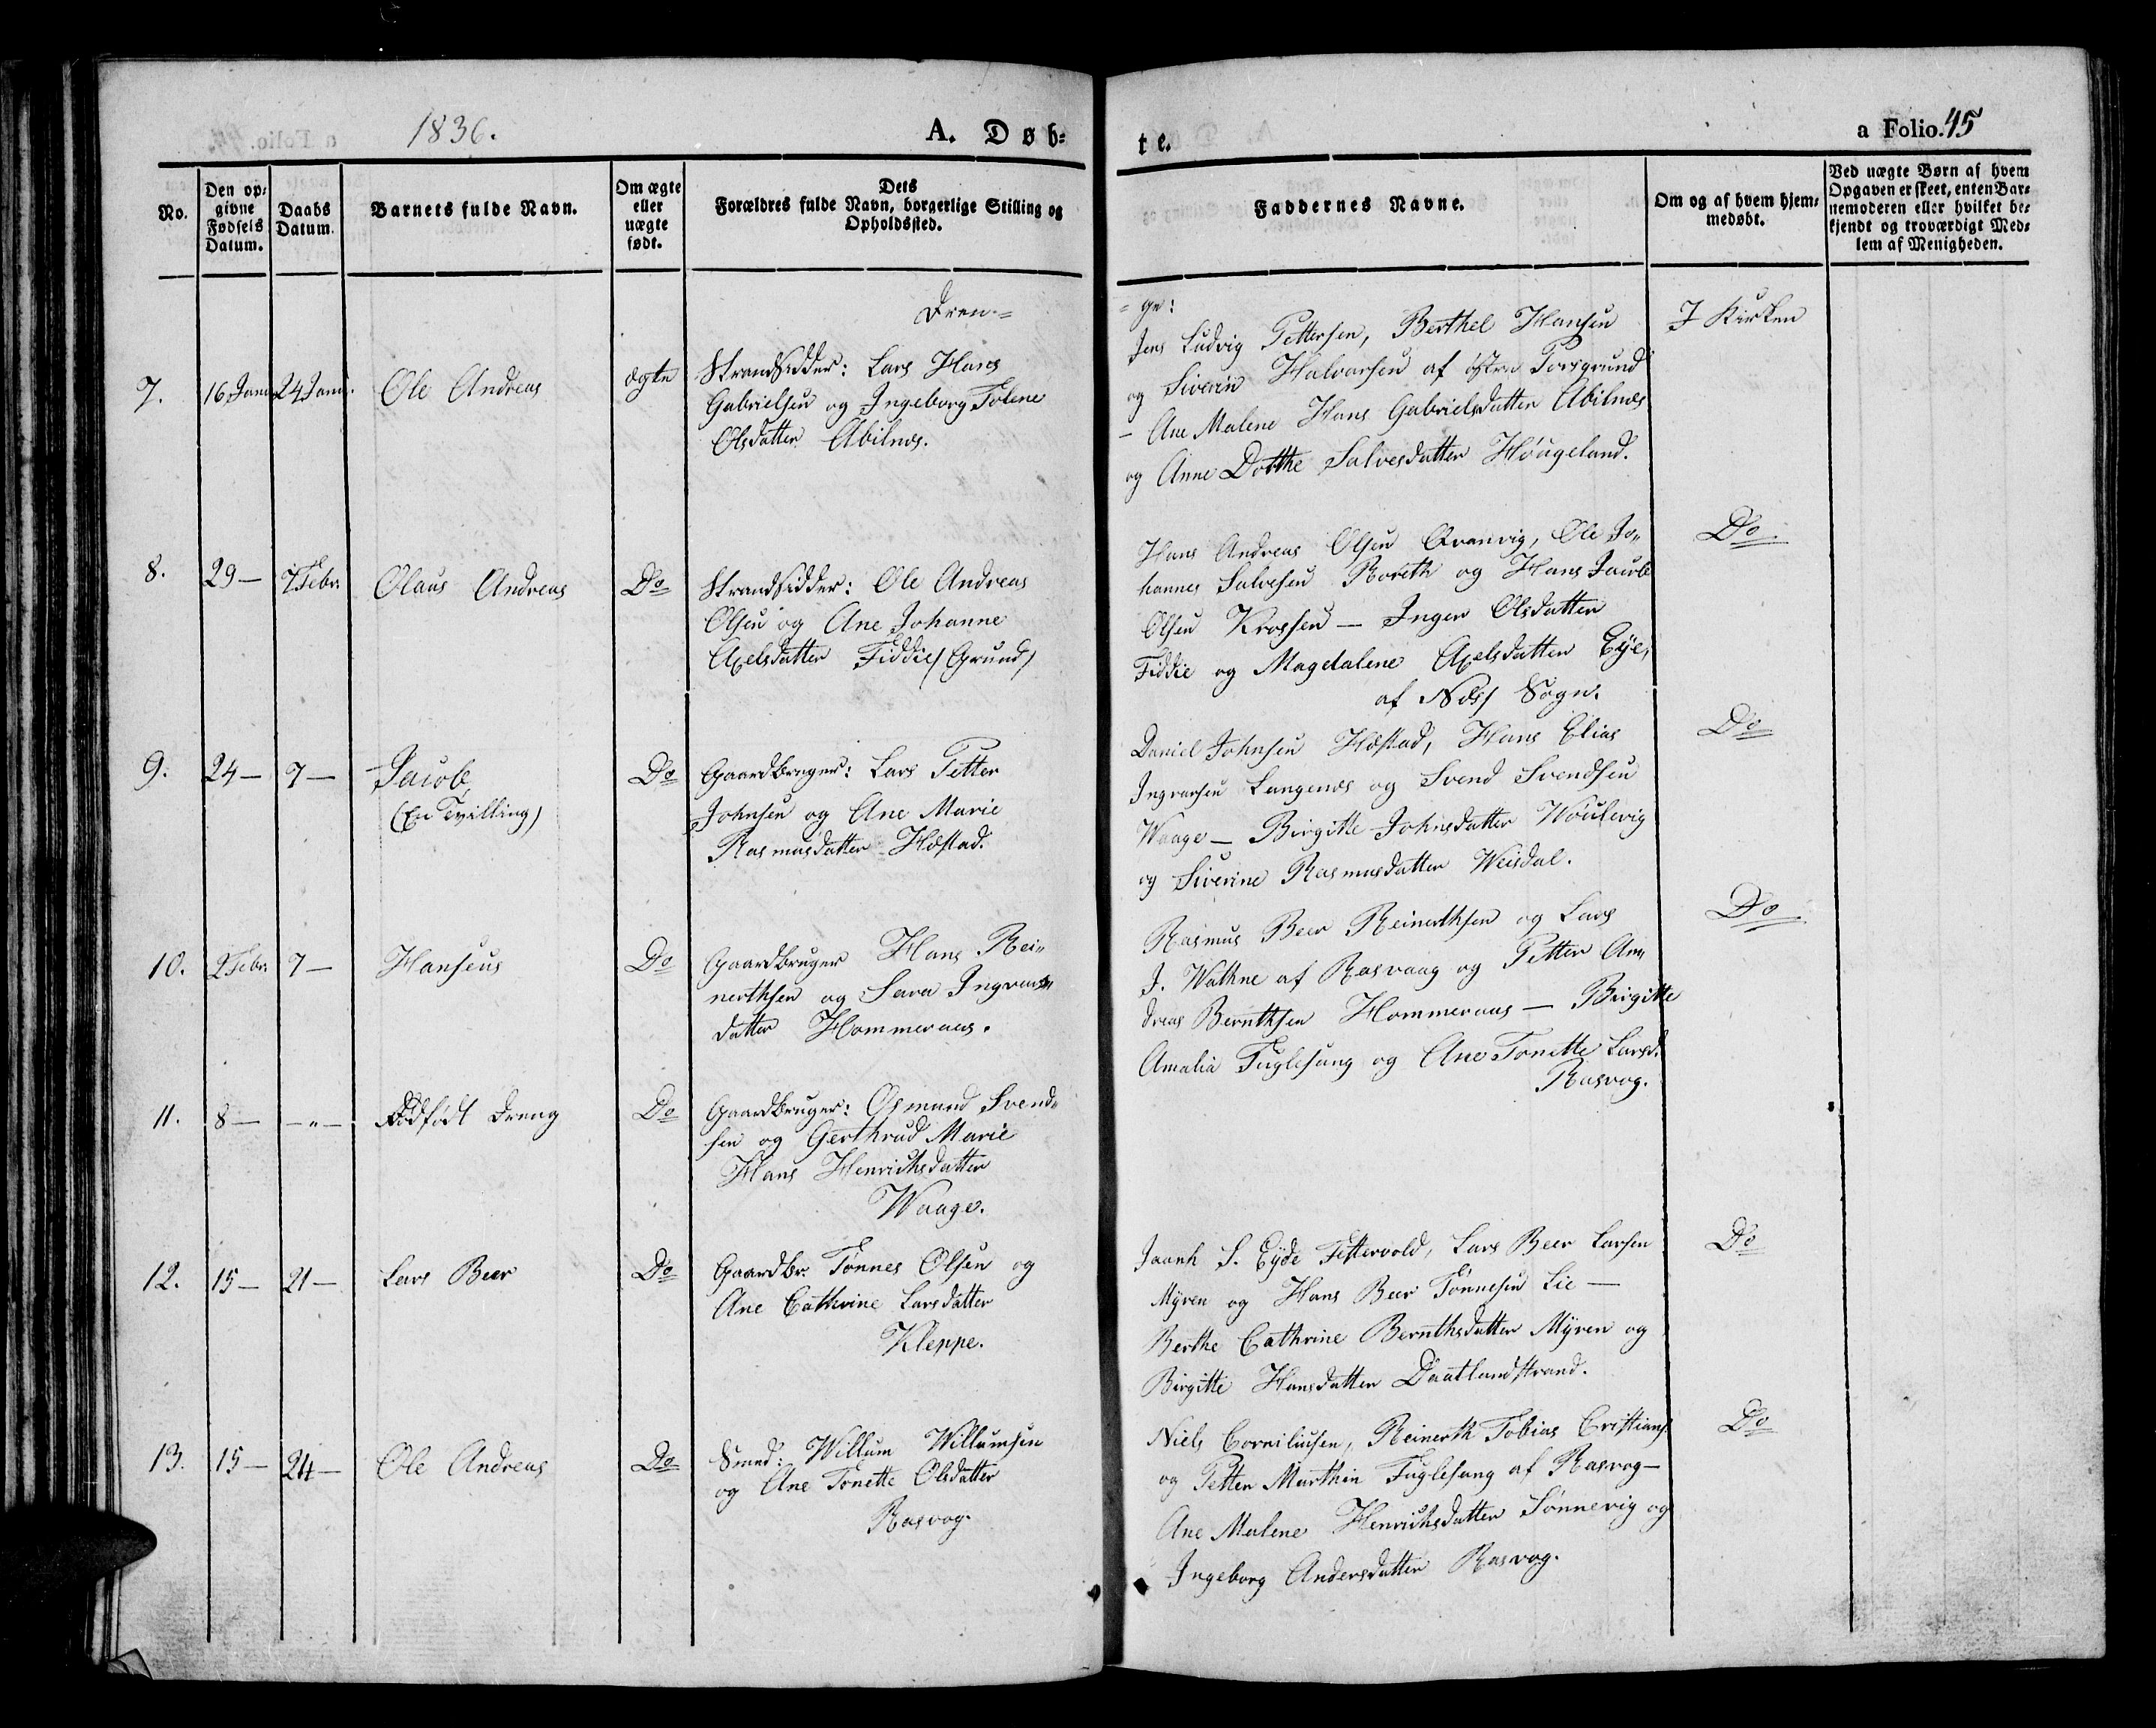 1836.
A. Døb=
te.
a Folio. 45
No.
Den op=
givne
Fødsels
Datum.
Daabs
Datum.
Barnets fulde Navn.
Om ægte
eller
uægte
født.
Dets
Forældres fulde Navn, borgerlige Stilling og
Opholdssted.
Faddernes Navne.
Om og af hvem hjem=
medøbt.
Ved uægte Børn af hvem
Opgaven er skeet, enten Bar=
nemoderen eller hvilket be=
kjendt og troværdigt Med=
lem af Menigheden.
Dren=
=ge:
7.
16 Janu.
24 Janu.
Ole Andreas
ægte
Strandsidder: Lars Hans
Gabrielsen og Ingeborg Tolene
Olsdatter Abilnæs.
Jens Ludvig Pettersen, Berthel Hansen
og Siverin Halvorsen af østre Porsgrund
- Ane Malene Hans Gabrielsdatter Abilnæs
og Anne Dorthe Salvesdatter Høugeland.
I Kirken
8.
29 —
7 Febr.
Olaus Andreas
Do
Strandsidder: Ole Andreas
Olsen og Ane Johanne
Axelsdatter Fiddie (Grund)
Hans Andreas Olsen Qvanvig, Ole Jo=
hannes Salvesen Roseth og Hans Jacob
Olsen Krossen — Inger Olsdatter
Fiddie og Magdalene Axelsdatter Eye,
af Næs Sogn.
Do
9.
24 —
7 —
Jacob
(En Tvilling)
Do
Gaardbruger: Lars Petter
Johnsen og Ane Marie
Rasmusdatter Hæstad.
Daniel Johnsen Hæstad, Hans Elias
Ingvarsen Langenæs og Svend Svendsen
Waage — Birgitte Johnsdatter Woulevig
og Siverine Rasmusdatter Weisdal.
Do
10.
2 Febr.
7 —
Hanseus
Do
Gaardbruger Hans Rei=
nerthsen og Sara Ingvars=
datter Hommeraas.
Rasmus Beer Reinerthsen og Lars
J. Wathne af Rasvaag og Petter An=
dreas Bernthsen Hommeraas — Birgitte
Amalia Fuglesang og Ane Tonette Larsd.
Rasvog.
Do
11.
8 —
— " —
Dødfødt Dreng
Do
Gaardbruger: Osmund Svend=
sen og Gerthrud Marie
Hans Henrichsdatter
Waage.
12.
15 —
21 —
Lars Beer
Do
Gaardbr. Tønnes Olsen og
Ane Cathrine Larsdatter
Kleppe.
S. Eyde Lars Beer Larsen
Myren og Hans Beer Tønnesen Lie —
Berthe Cathrine Bernthsdatter Myren og
Birgitte Hansdatter Daatlandstrand.
Do
13.
15 —
24 —
Ole Andreas
Do
Smed: Willum Willumsen
og Ane Tonette Olsdatter
Rasvog.
Niels Corneliusen, Reinerth Tobias Cristians.
og Petter Marthin Fuglesang af Rasvog —
Ane Malene Henrichsdatter Sønnevig og
Ingeborg Andersdatter Rasvog.
Do